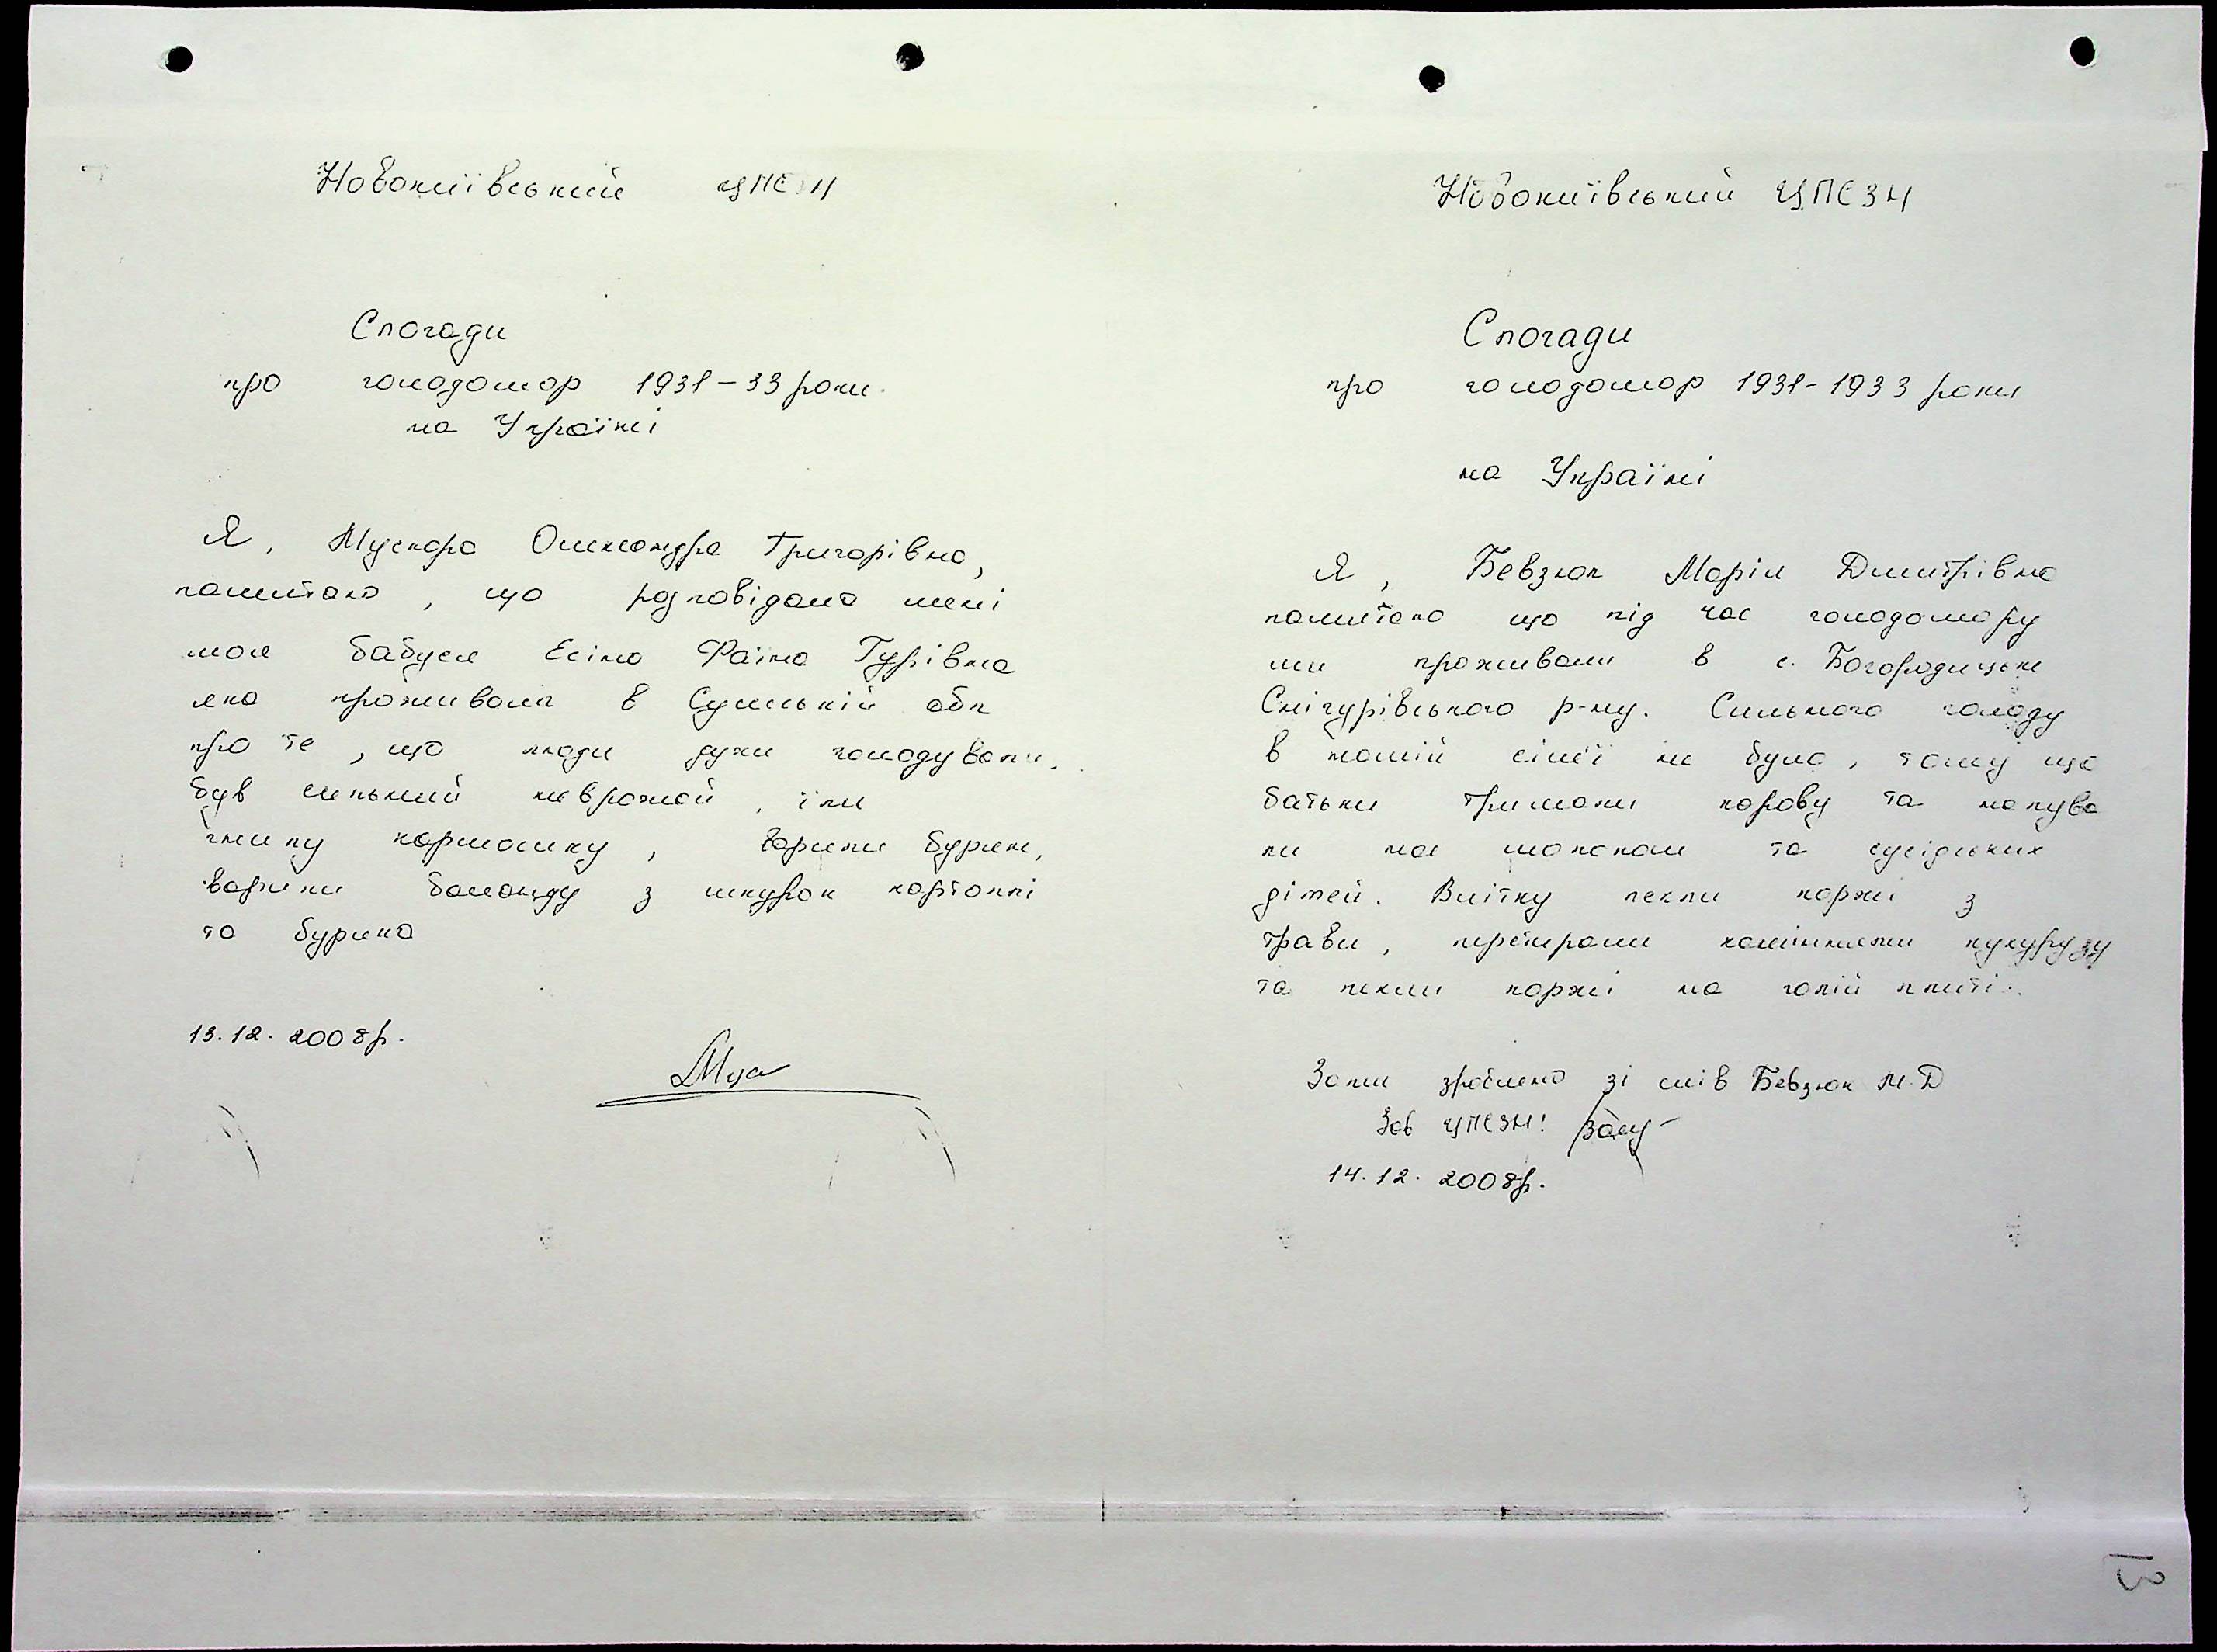 Новокиївський ЦПСЗН
Спогади
про голодомор 1931-33 роки
на Україні
Я, Мускора Олександра Григорівна,
памятаю, що розповідала мені
моя бабуся Есіна Раїна Гурівна
яка проживала в Сумській обл
про те, що люди дуже голодували,
був сильний неврожай, їли
гнилу кормашку, варили буряк,
варили баланду з шкурок картоплі
та буряка
13.12.2008р.
Новокиївський ЦПСЗН
Спогади
про голодомор 1931-1933 роки
на Україні
Я, Бевзюк Марія Дмитрівна
памятаю що під час голодомору
ми проживали в с. Богородицьке
Снігурівського р-ну. Сильного голоду
в нашій сімї не було, тому що
батьки тримали корову та напува
ли нас молоком та сусідських
дітей. Влітку пекли коржі з
трави, перетирали камінням кукурузу
та пекли коржі на голій плиті.
Запис зроблено зі слів Бевзюк М.Д
Зав ЦПСЗН:
14.12.2008р.
13